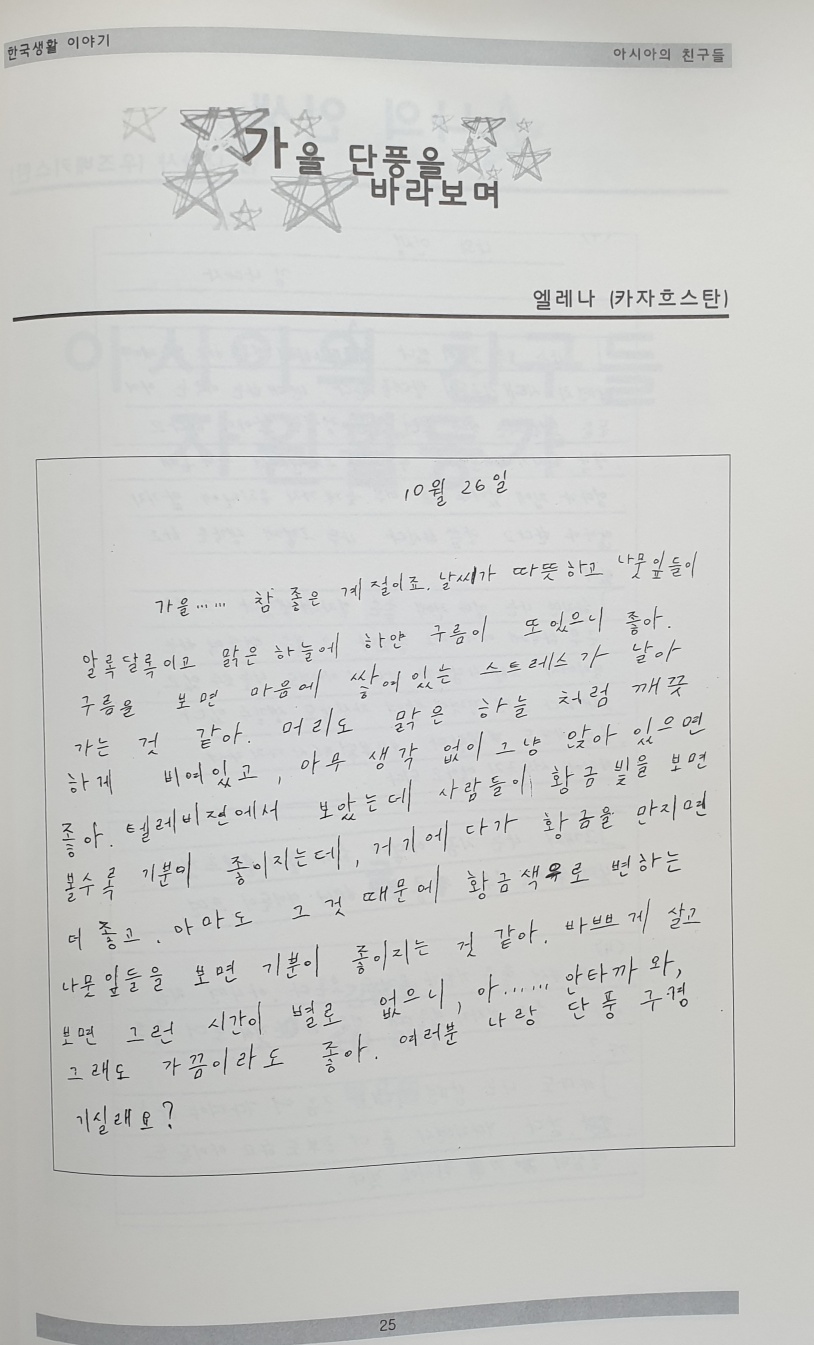 한국생활 이야기
아시아의 친구들
가을 단풍을
바라보며
엘레나 (카자흐스탄)
10월 26일
가을…… 참 좋은 계절이죠. 날씨가 따뜻하고 나뭇잎들이
알록달록이고 맑은 하늘에 하얀 구름이 또있으니 좋아.
구름을 보면 마음에 쌓여있는 스트레스가 날아
가는 것 같아. 머리도 맑은 하늘 처럼 깨끗
하게 비여있고, 아무 생각 없이 그냥 앉아 있으면
좋아. 텔레비젼에서 보았는데 사람들이 황금 빛을 보면
볼수록 기분이 좋이지는데, 거기에 다가 황금을 만지면
더 좋고. 아마도 그 것 때문에 황금색으로 변하는
나뭇잎들을 보면 기분이 좋이지는 것 같아. 바쁘게 살고
보면 그런 시간이 별로 없으니, 아…… 안타까와,
그래도 가끔이라도 좋아. 여러분 나랑 단풍 구경
기실래요?
25